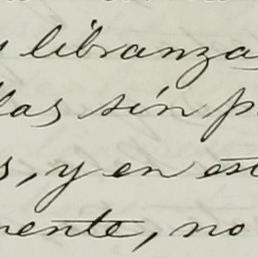 libranza
las sin p
s, y en est
mente, no